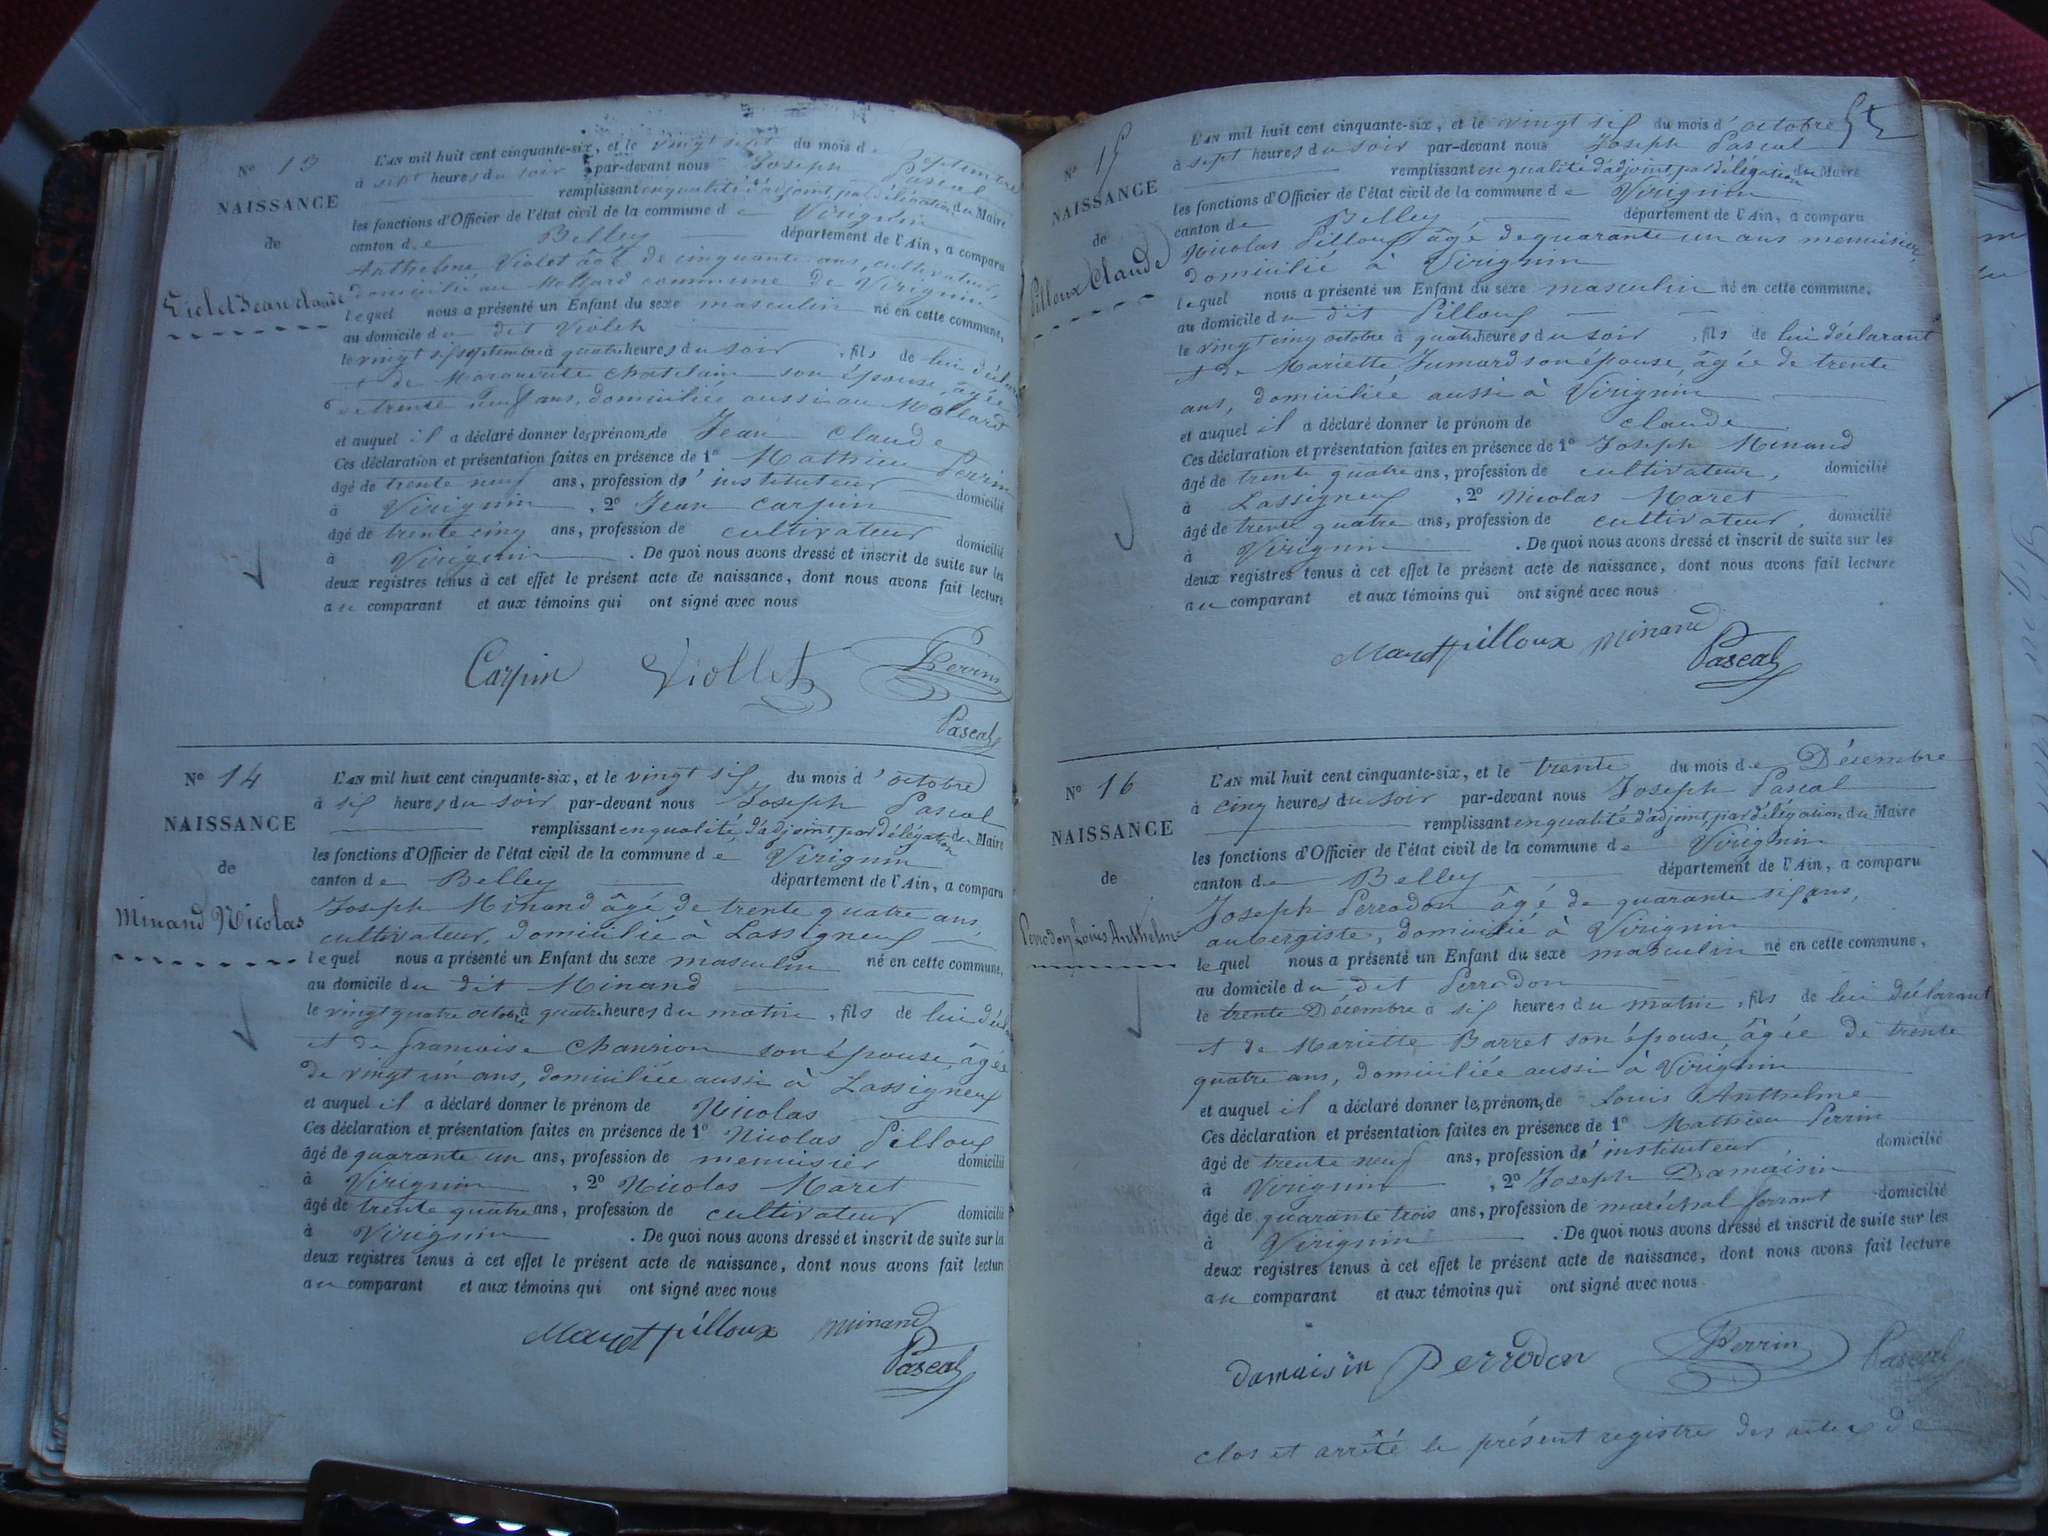 N° 13
NAISSANCE
de
Violet Jean Claude
L'AN mil huit cent cinquante-six, et le vingt sept du mois de Septembre
à sept heures du soir par-devant nous Joseph Pascal
remplissant en qualité d'adjoint par délégation du Maire
les fonctions d'Officier de l'état civil de la commune de Virignin
canton de Belley département de l'Ain, a comparu
Anthelme Violet âgé de cinquante ans, cultivateur,
domicilié au Mollard commune de Virignin
lequel nous a présenté un Enfant du sexe masculin né en cette commune,
au domicile du dit Violet
le vingt six septembre à quatre heures du soir, fils de lui déclarant
et de Marguerite Chatelain son épouse, âgée
de trente neuf ans, domiciliée aussi au Mollard
et auquel il a déclaré donner les prénoms de Jean Claude
Ces déclaration et présentation faites en présence de 1° Mathieu Perrin
âgé de trente neuf ans, profession d'instituteur domicilié
à Virignin, 2° Jean Carpin
âgé de trente cinq ans, profession de cultivateur domicilié
à Virignin. De quoi nous avons dressé et inscrit de suite sur les
deux registres tenus à cet effet le présent acte de naissance, dont nous avons fait lecture
au comparant et aux témoins qui ont signé avec nous
Carpin Viollet Perrin
Pascal
N° 14
NAISSANCE
de
Minand Nicolas
L'AN mil huit cent cinquante-six, et le vingt six du mois d'octobre
à six heures du soir par-devant nous Joseph Pascal
remplissant en qualité d'adjoint par délégation du Maire
les fonctions d'Officier de l'état civil de la commune de Virignin
canton de Belley département de l'Ain, a comparu
Joseph Minand âgé de trente quatre ans,
cultivateur, domicilié à Lassigneux
lequel nous a présenté un Enfant du sexe masculin né en cette commune,
au domicile du dit Minand
le vingt quatre octobre à quatre heures du matin, fils de lui déclarant
et de françoise Chanrion son épouse, âgée
de vingt un ans, domiciliée aussi à Lassigneux
et auquel il a déclaré donner le prénom de Nicolas
Ces déclaration et présentation faites en présence de 1° Nicolas Pilloux
âgé de quarante un ans, profession de menuisier domicilié
à Virignin, 2° Nicolas Maret
âgé de trente quatre ans, profession de cultivateur domicilié
à Virignin. De quoi nous avons dressé et inscrit de suite sur les
deux registres tenus à cet effet le présent acte de naissance, dont nous avons fait lecture
au comparant et aux témoins qui ont signé avec nous
Maret pilloux minand
Pascal
N° 15
NAISSANCE
de
Pilloux Claude
L'AN mil huit cent cinquante-six, et le vingt six du mois d'octobre
à sept heures du soir par-devant nous Joseph Pascal
remplissant en qualité d'adjoint par délégation du Maire
les fonctions d'Officier de l'état civil de la commune de Virignin
canton de Belley département de l'Ain, a comparu
Nicolas Pilloux âgé de quarante un ans menuisier,
domicilié à Virignin
lequel nous a présenté un Enfant du sexe masculin né en cette commune,
au domicile du dit Pilloux
le vingt cinq octobre à quatre heures du soir, fils de lui déclarant
et de Mariette Jumard son épouse, âgée de trente
ans, domiciliée aussi à Virignin
et auquel il a déclaré donner le prénom de Claude
Ces déclaration et présentation faites en présence de 1° Joseph Minand
âgé de trente quatre ans, profession de cultivateur, domicilié
à Lassigneux, 2° Nicolas Maret
âgé de trente quatre ans, profession de cultivateur, domicilié
à Virignin. De quoi nous avons dressé et inscrit de suite sur les
deux registres tenus à cet effet le présent acte de naissance, dont nous avons fait lecture
au comparant et aux témoins qui ont signé avec nous
Maret pilloux minand
Pascal
N° 16
NAISSANCE
de
Perrodon Louis Anthelme
L'AN mil huit cent cinquante-six, et le trente du mois de Décembre
à cinq heures du soir par-devant nous Joseph Pascal
remplissant en qualité d'adjoint par délégation du Maire
les fonctions d'Officier de l'état civil de la commune de Virignin
canton de Belley département de l'Ain, a comparu
Joseph Perrodon âgé de quarante six ans,
aubergiste, domicilié à Virignin
lequel nous a présenté un Enfant du sexe masculin né en cette commune,
au domicile du dit Perrodon
le trente Décembre à six heures du matin, fils de lui déclarant
et de Mariette Barret son épouse, âgée de trente
quatre ans, domiciliée aussi à Virignin
et auquel il a déclaré donner les prénoms de Louis Anthelme
Ces déclaration et présentation faites en présence de 1° Mathieu Perrin
âgé de trente neuf ans, profession d'instituteur domicilié
à Virignin, 2° Joseph Damaisin
âgé de quarante trois ans, profession de maréchal ferrant domicilié
à Virignin. De quoi nous avons dressé et inscrit de suite sur les
deux registres tenus à cet effet le présent acte de naissance, dont nous avons fait lecture
au comparant et aux témoins qui ont signé avec nous.
Damaisin Perrodon Perrin Pascal
clos et arrêté le présent registre des actes de